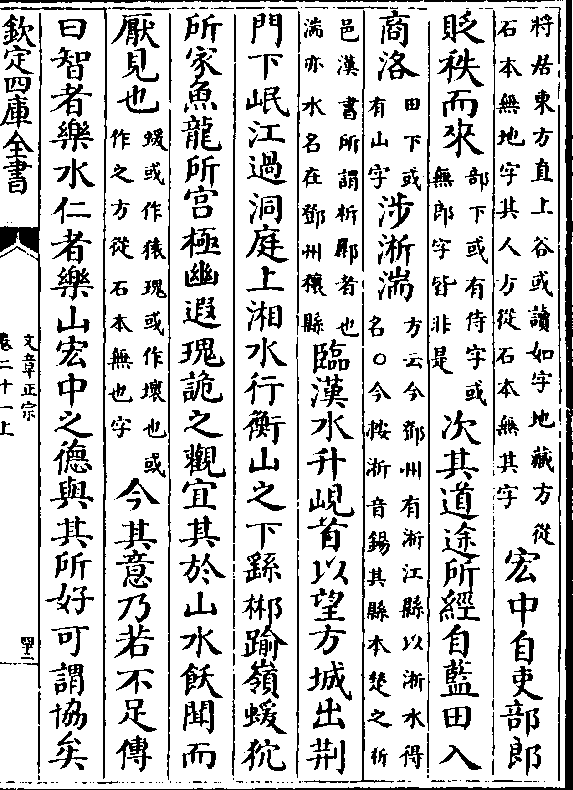 將居東方直上谷或讀如字地藏方從
石本無地字其人方從石本無其字
宏中自吏部郎
貶秩而來
部下或有侍字或
無郎字皆非是
次其道途所經自藍田入
商洛
田下或
有山字
涉淅湍
方云今鄧州有淅江縣以淅水得
名○今按淅音錫其縣本楚之析
邑漢書所謂析酈者也
湍亦水名在鄧州穰縣
臨漢水升峴首以望方城出荆
門下岷江過洞庭上湘水行衡山之下繇郴踰嶺蝯狖
所家魚龍所宫極幽遐瑰詭之觀宜其於山水飫聞而
厭見也
蝯或作猿瑰或作壞也或
作之方從石本無也字
今其意乃若不足傳
曰智者樂水仁者樂山宏中之德與其所好可謂協矣
欽定四庫全書
文章正宗
卷二十一上